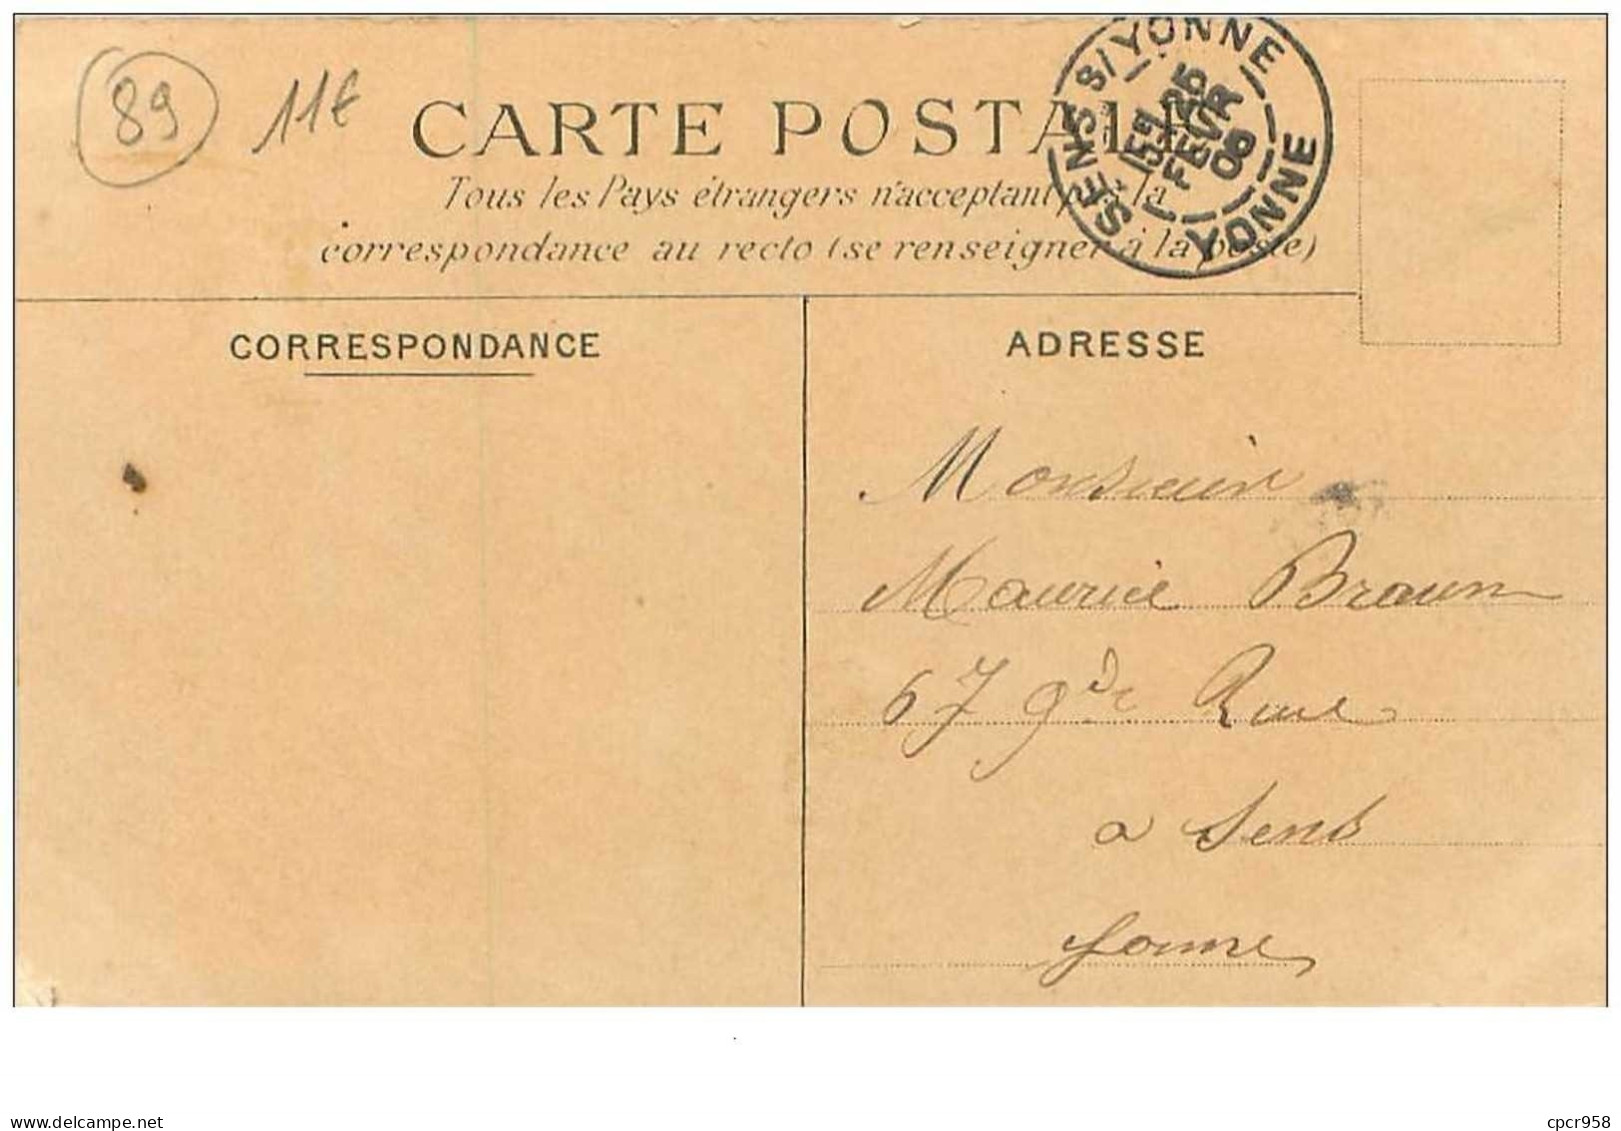 89
11€
CARTE POSTALE
SENS S/YONNE
15h 25
FEVR
06
YONNE
Tous les Pays étrangers n'acceptant pas la
correspondance au recto (se renseigner à la poste)
CORRESPONDANCE
ADRESSE
Monsieur
Maurice Braun
67 gde Rue
a Sens
Yonne
delcampe.net
cpcr958